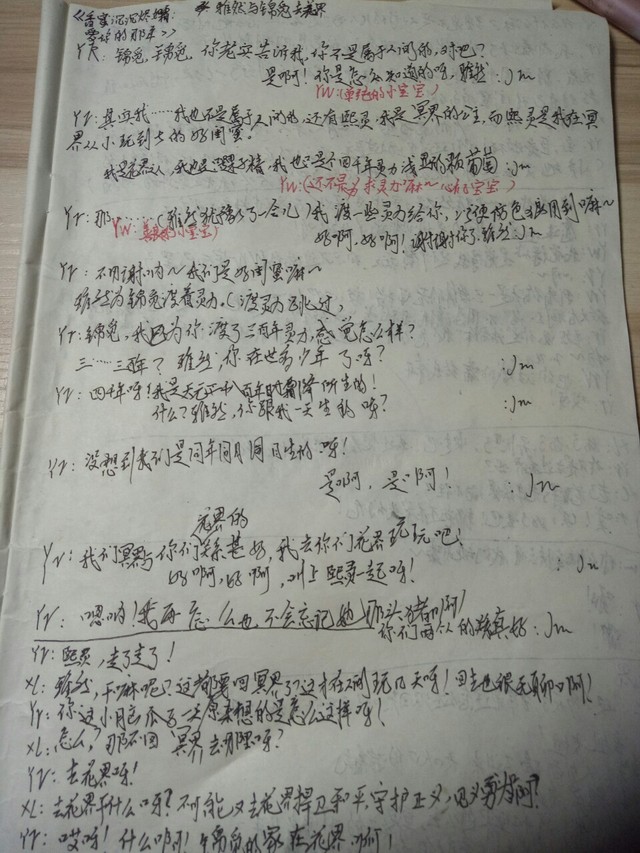 《香蜜沉沉烬如霜: * 雅然与锦觅去花界
等你的那年》
Yr: 锦觅,锦觅,你老实告诉我,你不是属于人间的,对吧?
是啊!你是怎么知道的呀,雅然 :Jm
Yw:(单纯的小宝宝)
Yr: 其实我……我也不是属于人间的,还有熙灵,我是冥界的公主,而熙灵是我在冥
界从小玩到大的好闺蜜。
我是花界人,我也是 我也是个四千年灵力浅显的颗葡萄 :Jm
Yw:(还不是为求灵力嘛~ 宝宝)
Yr: 那……(雅然犹豫了一会儿)我渡一些灵力给你,以预防 用到嘛~
Yw: 的小宝宝
好啊,好啊!谢谢你了,雅然 Jm
Yr: 不用谢呐~我们是好闺蜜嘛~
雅然为锦觅渡着灵力,(渡灵力跳过)
Yr: 锦觅,我因为你渡了三百年灵力,感觉怎么样?
三……三百年?雅然,你在世有少年了呀? :Jm
Yr: 四千年呀!我是天元 八百年时霜降所生的!
什么?雅然,你跟我一天生的呀? :Jm
Yr: 没想到我们是同年同月同日生的呀!
是啊,是啊! :Jm
花界的
Yr: 我们冥界与你们关系甚好,我去你们花界玩玩吧!
好啊,好啊,叫上熙灵一起呀! :Jm
Yr: 嗯呐!我再怎么也不会忘记她那头猪啊!
你们两个的 真好 :Jm
Yr: 熙灵,走了走了!
XL: 雅然,干嘛呢?这都要回冥界了?这才在人间玩几天呀!回去也很无聊啊!
Yr: 你这小脑瓜子一天原来想的是怎么这样呀!
XL: 怎么?那不回冥界去哪里呀?
Yr: 去花界呀!
XL: 去花界干什么呀?不可能又去花界捍卫和平,守护正义,见义勇为啊?
Yr: 哎呀!什么啊!锦觅的家在花界啊!